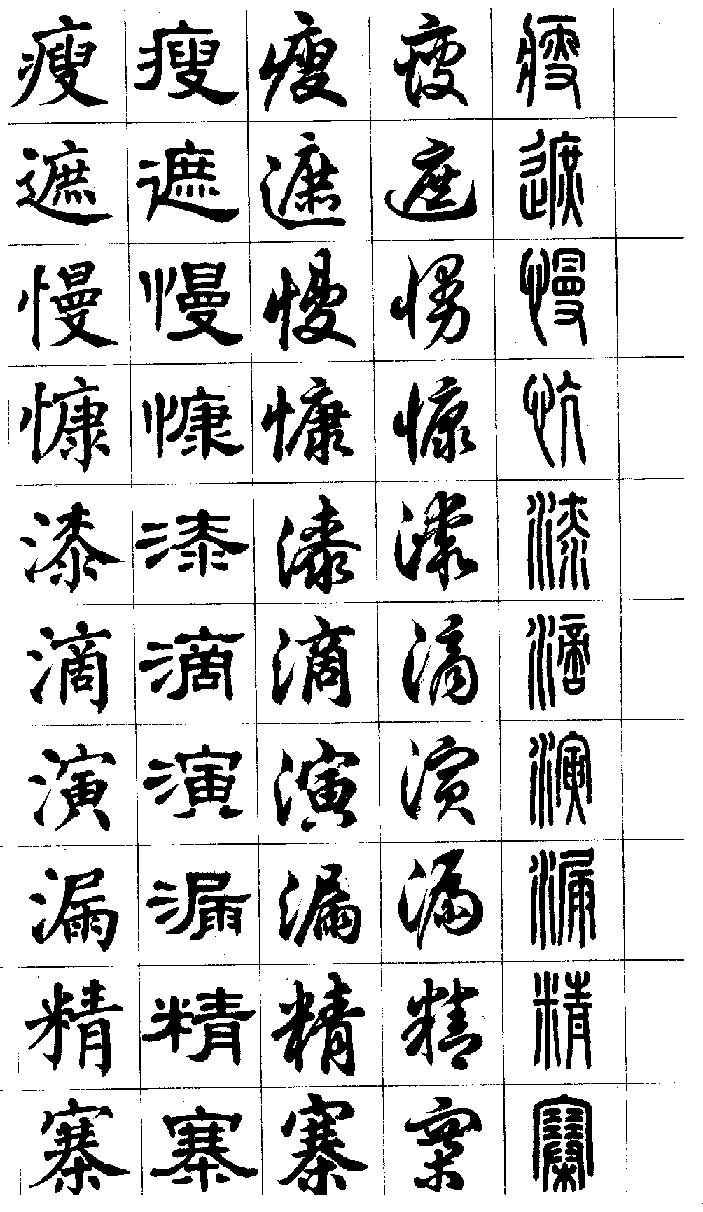 瘦 瘦 瘦 瘦 瘦
遮 遮 遮 遮 遮
慢 慢 慢 慢 慢
慷 慷 慷 慷 忼
漆 漆 漆 漆 漆
滴 滴 滴 滴 滴
演 演 演 演 演
漏 漏 漏 漏 漏
精 精 精 精 精
寨 寨 寨 寨 寨